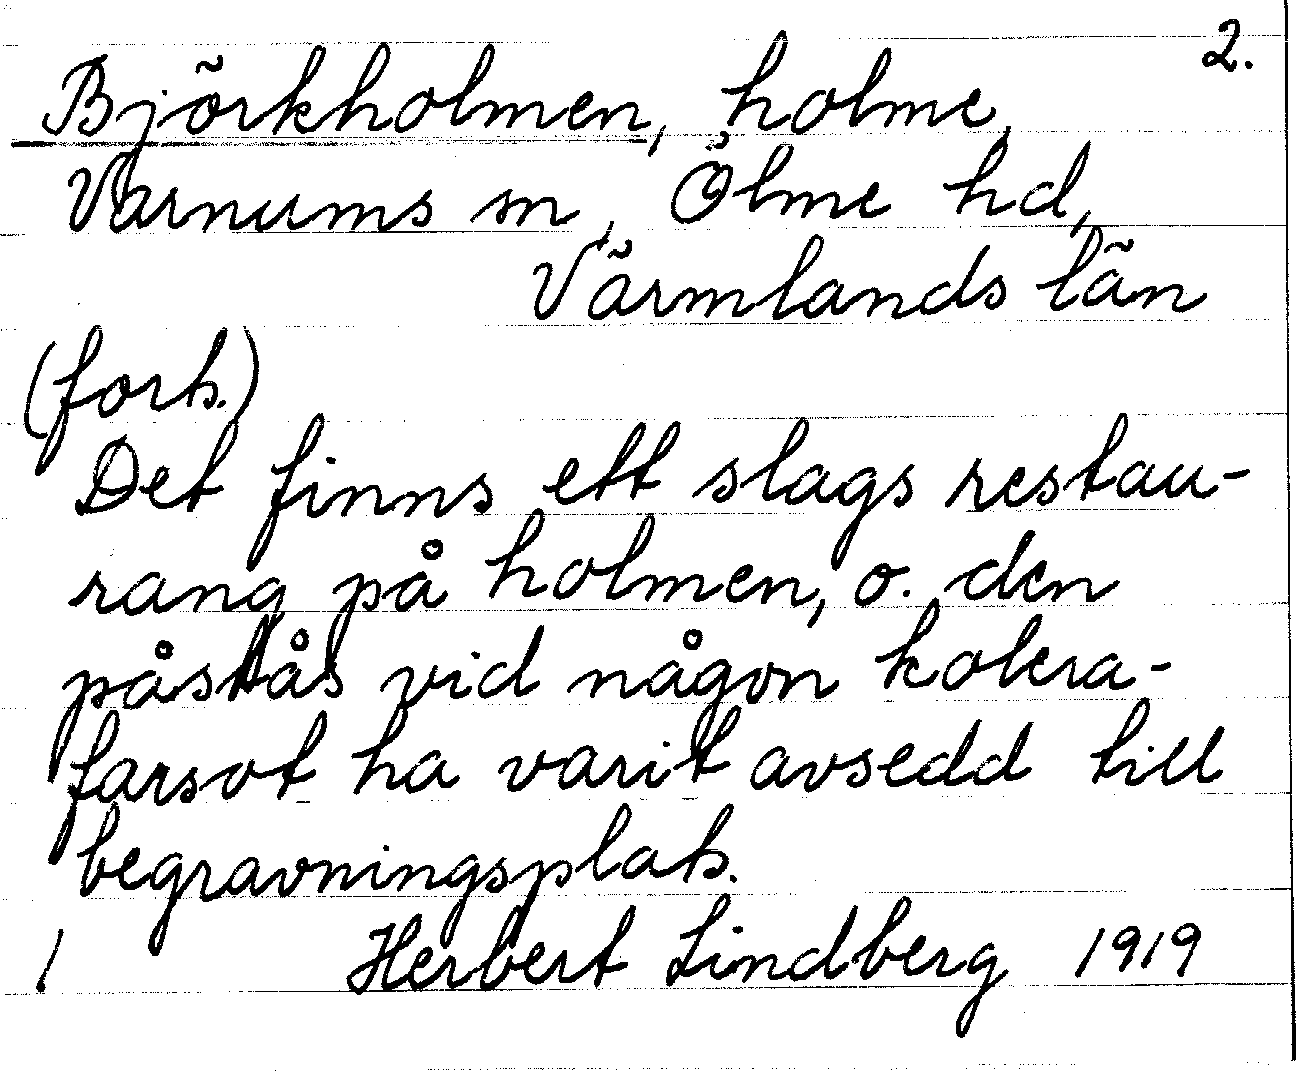 2.
Björkholmen, holme,
Varnums sn, Ölme hd,
Värmlands län
(forts.)
Det finns ett slags restau-
rang på holmen, o. den
påstås vid någon kolera-
farsot ha varit avsedd till
begravningsplats.
/ Herbert Lindberg 1919